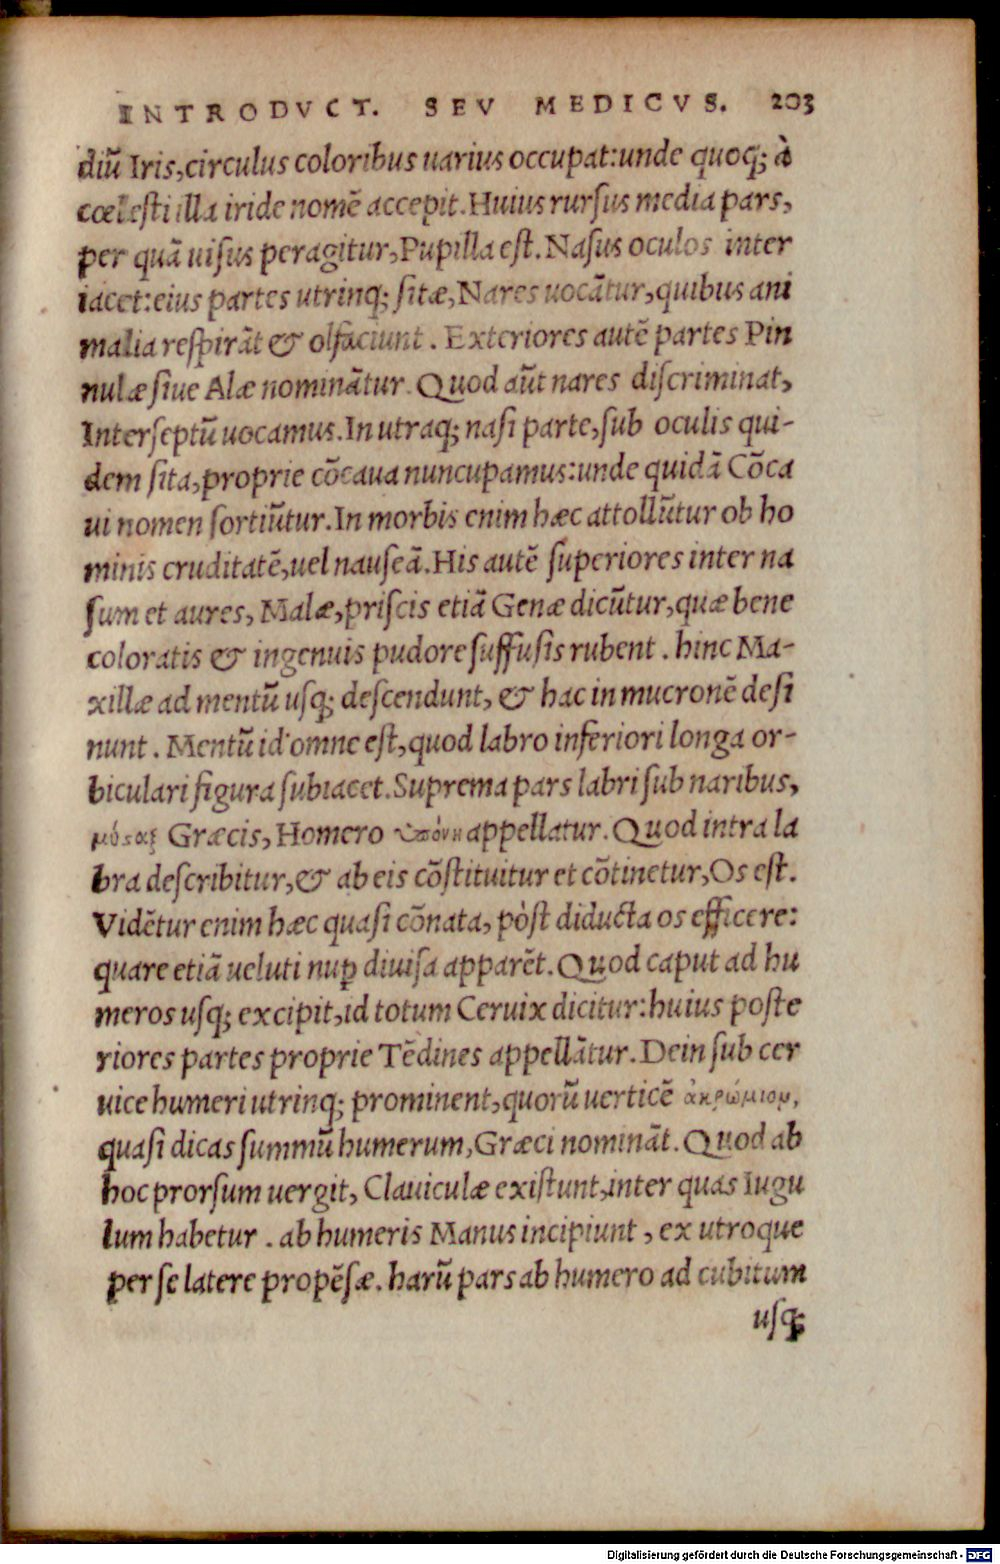 INTRODVCT. SEV MEDICVS. 203
diũ Iris, circulus coloribus uarius occupat: unde quoq; à
cœlesti illa iride nomẽ accepit. Huius rursus media pars,
per quã uisus peragitur, Pupilla est. Nasus oculos inter
iacet: eius partes utrinq; sitæ, Nares uocãtur, quibus ani
malia respirãt & olfaciunt. Exteriores autẽ partes Pin
nulæ siue Alæ nominãtur. Quod aũt nares discriminat,
Interseptũ uocamus. In utraq; nasi parte, sub oculis qui-
dem sita, proprie cõcaua nuncupamus: unde quidã Cõca
ui nomen sortiũtur. In morbis enim hæc attollũtur ob ho
minis cruditatẽ, uel nauseã. His autẽ superiores inter na
sum et aures, Malæ, priscis etiã Genæ dicũtur, quæ bene
coloratis & ingenuis pudore suffusis rubent. hinc Ma-
xillæ ad mentũ usq; descendunt, & hac in mucronẽ desi
nunt. Mentũ id omne est, quod labro inferiori longa or-
biculari figura subiacet. Suprema pars labri sub naribus,
μύσαξ Græcis, Homero ὑπόνη appellatur. Quod intra la
bra describitur, & ab eis cõstituitur et cõtinetur, Os est.
Vidẽtur enim hæc quasi cõnata, pòst diducta os efficere:
quare etiã ueluti nuꝑ diuisa apparẽt. Quod caput ad hu
meros usq; excipit, id totum Ceruix dicitur: huius poste
riores partes proprie Tẽdines appellãtur. Dein sub cer
uice humeri utrinq; prominent, quorũ uerticẽ ἀκρώμιον,
quasi dicas summũ humerum, Græci nominãt. Quod ab
hoc prorsum uergit, Clauiculæ existunt, inter quas Iugu
lum habetur. ab humeris Manus incipiunt, ex utroque
per se latere propẽsæ. harũ pars ab humero ad cubitum
usq;
Digitalisierung gefördert durch die Deutsche Forschungsgemeinschaft - DFG